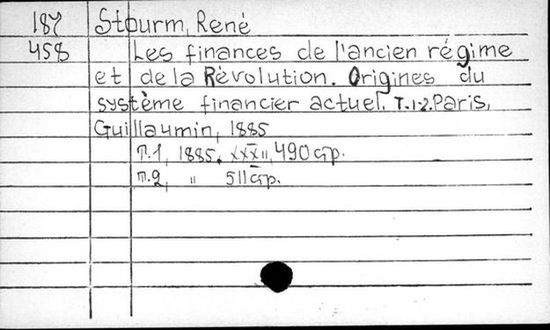 187 Stourm, René
458 Les finances de l'ancien régime
et de la Révolution. Origines du
système financier actuel. T.1-2. Paris,
Guillaumin, 1885
т.1, 1885. XXXII, 490 стр.
т.2, " 511 стр.